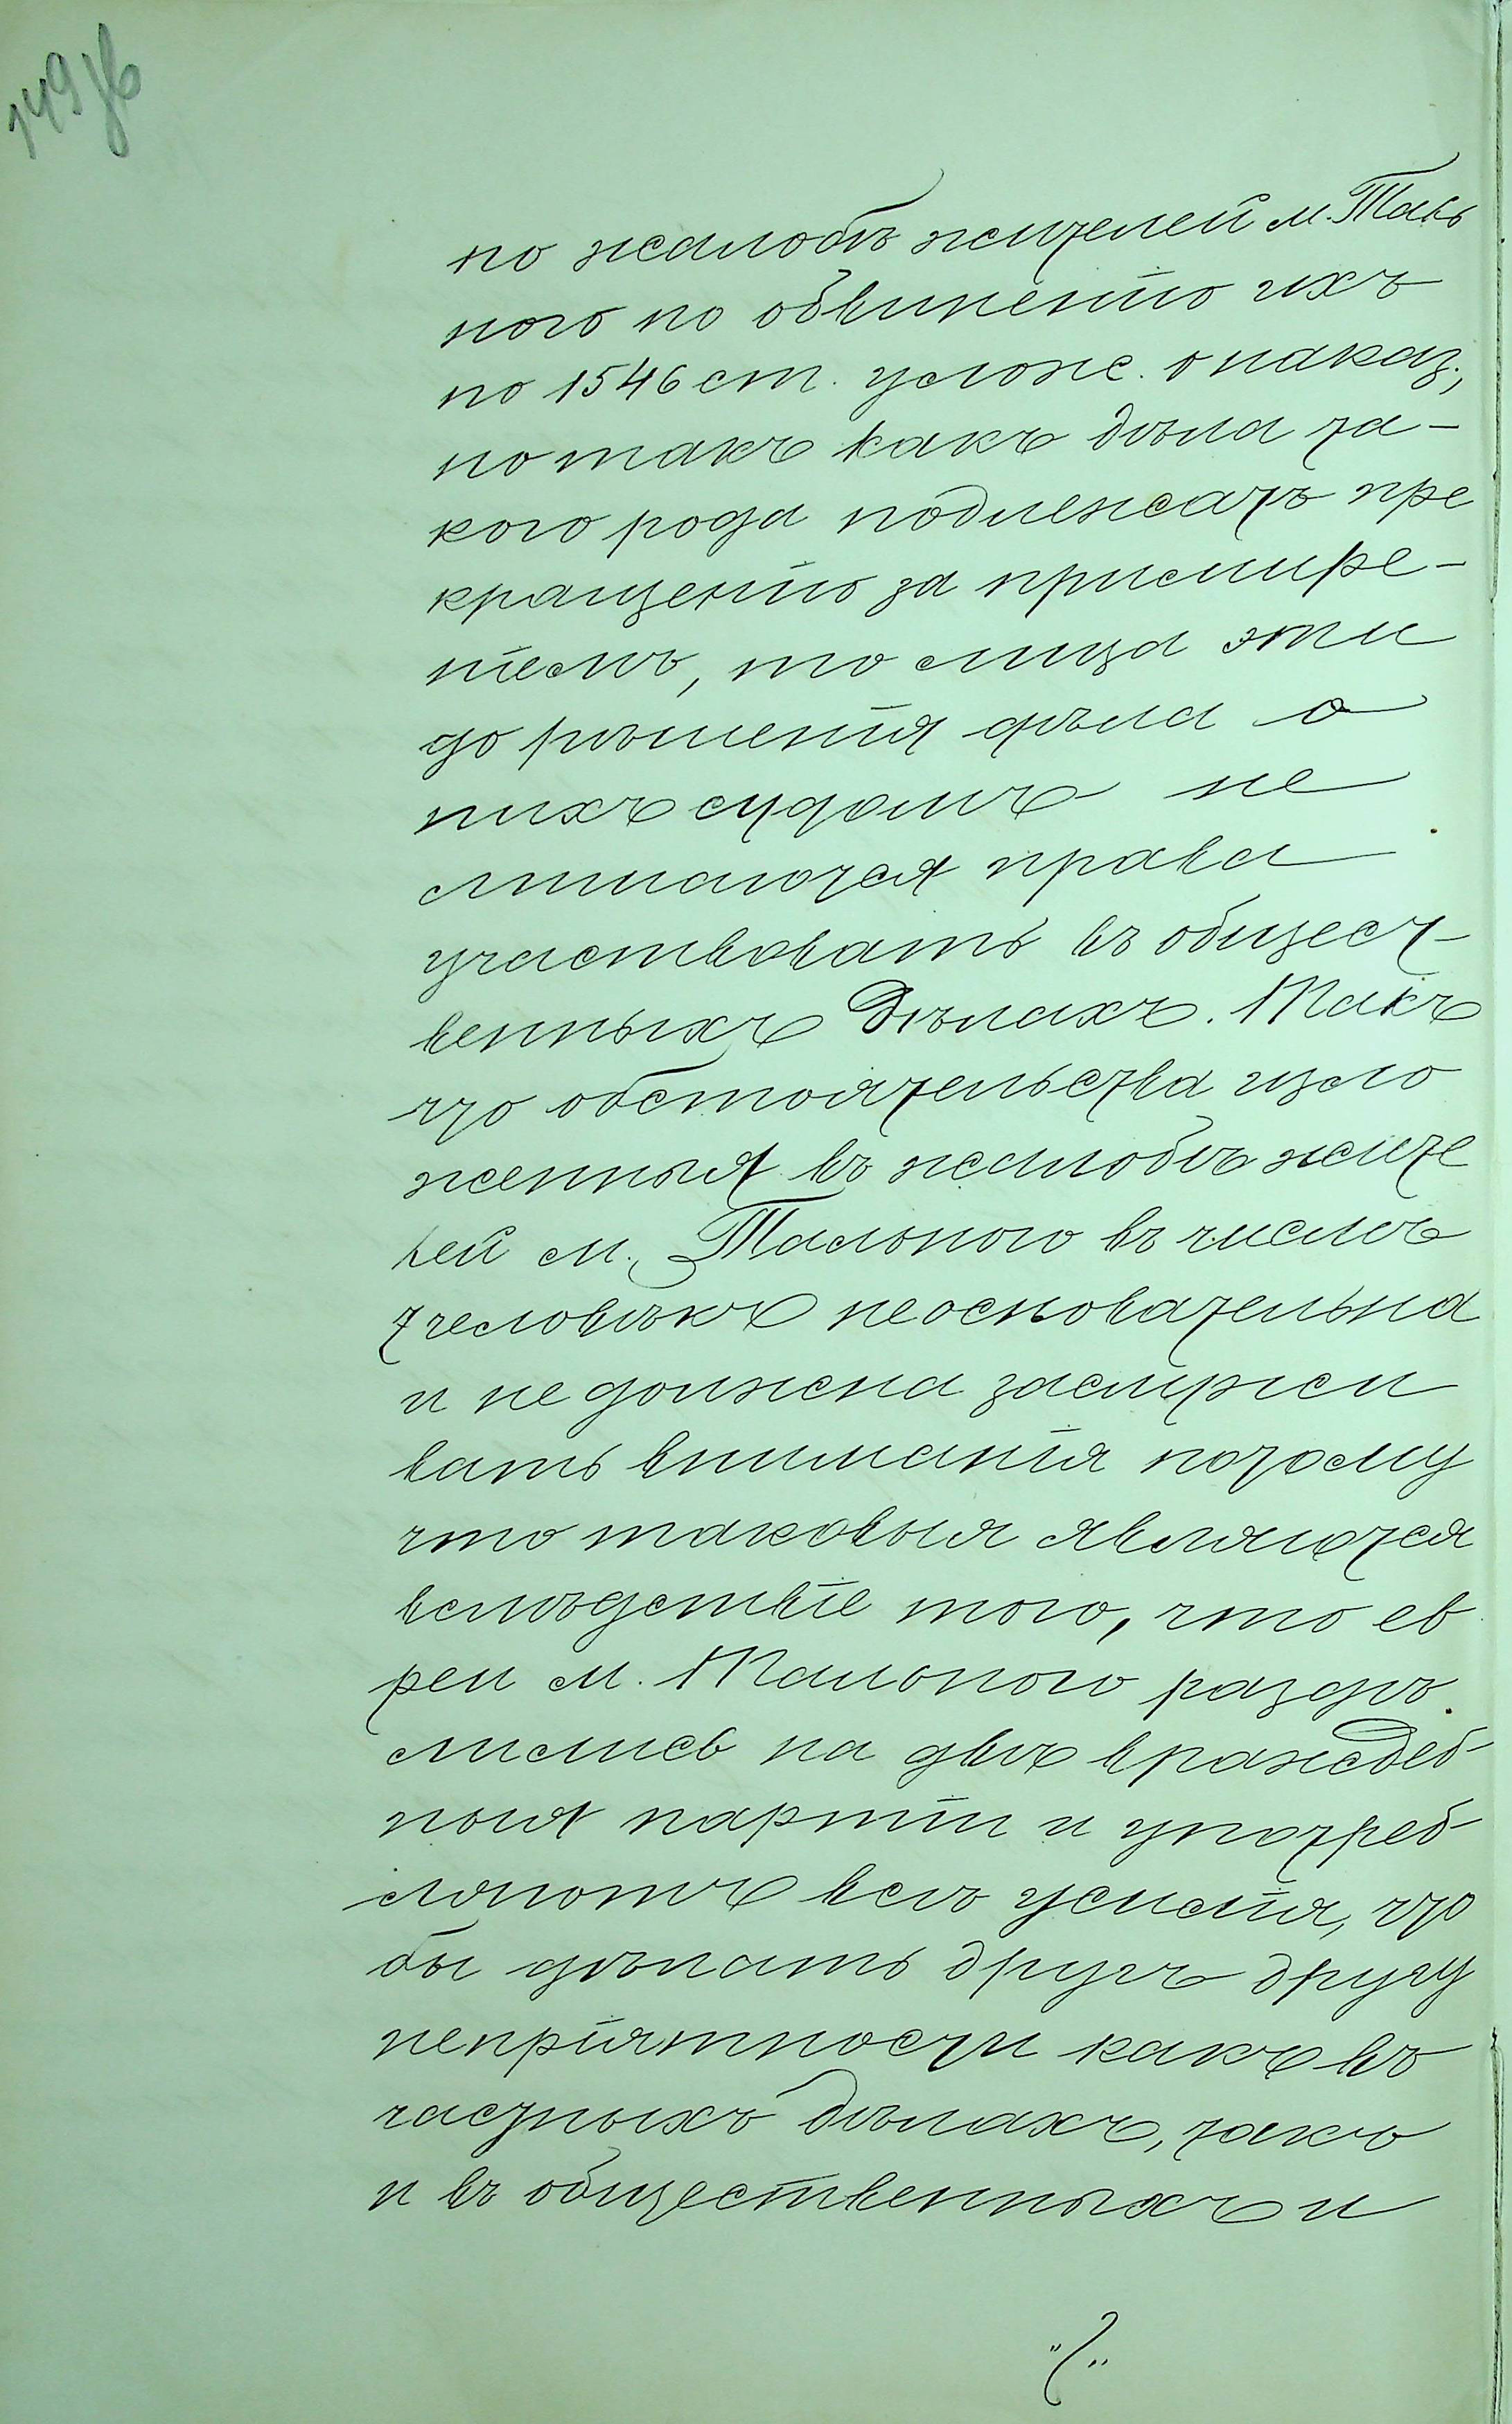 149 об
по жалобѣ жителей м. Таль
ного по обвиненію ихъ
по 1546 ст. улож. о наказ.,
но такъ какъ дѣла та-
кого рода подлежатъ пре
кращенію за примире-
ніемъ, то лица эти
до рѣшенія дѣла о
нихъ судомъ не
лишаются права
участвовать въ общест-
венныхъ дѣлахъ. Такъ
что обстоятельства изло
женныя въ жалобѣ жите
лей м. Тального въ числѣ
7 человѣкъ неосновательна
и не должна заслужи
вать вниманія потому
что таковыя являются
вслѣдствіе того, что ев
реи м. Тального раздѣ
лились на двѣ враждеб-
ныя партіи и употреб-
ляютъ всѣ усилія, что
бы дѣлать другъ другу
непріятности какъ въ
частныхъ дѣлахъ, такъ
и въ общественныхъ и